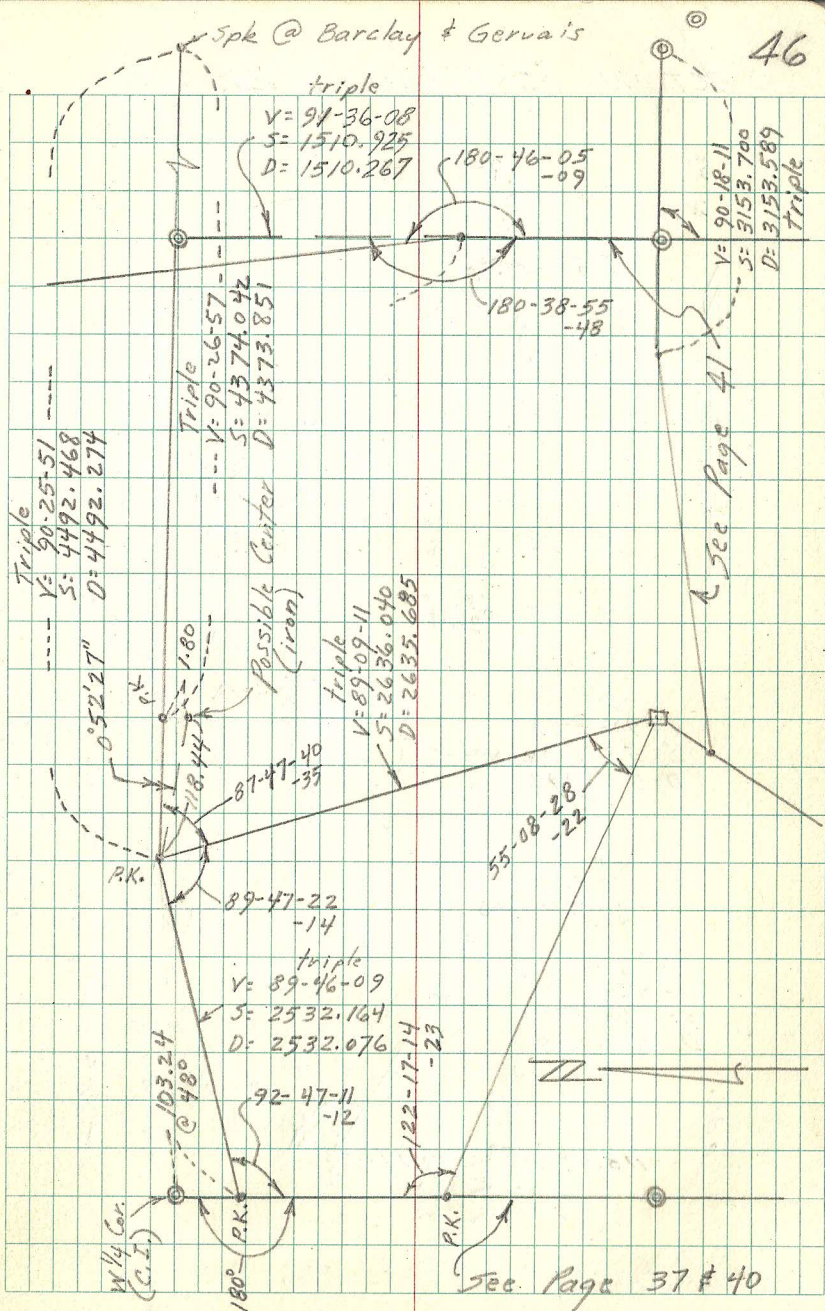 46
Spk @ Barclay & Gervais
triple
V= 91-36-08
S= 1510.925
D= 1510.267
180-46-05
-09
180-38-55
-48
V= 90-18-11
S= 3153.700
D= 3153.589
Triple
See Page 41
Triple
V= 90-26-57
S= 4374.042
D= 4373.851
Triple
V= 90-25-51
S= 4492.468
D= 4492.274
Possible Center
(iron)
1.80
P.K.
0°52'27"
118.44
triple
V= 89-09-11
S= 2636.040
D= 2635.685
87-47-40
-35
55-08-28
-22
P.K.
89-47-22
-14
triple
V= 89-46-09
S= 2532.164
D= 2532.076
103.24
@ 48°
92-47-11
-12
122-17-14
-23
N
W 1/4 Cor.
(C.I.)
180°
P.K.
P.K.
See Page 37 & 40